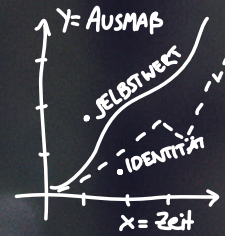 Y= AUSMAß
• SELBSTWERT
• IDENTITÄT
X= Zeit